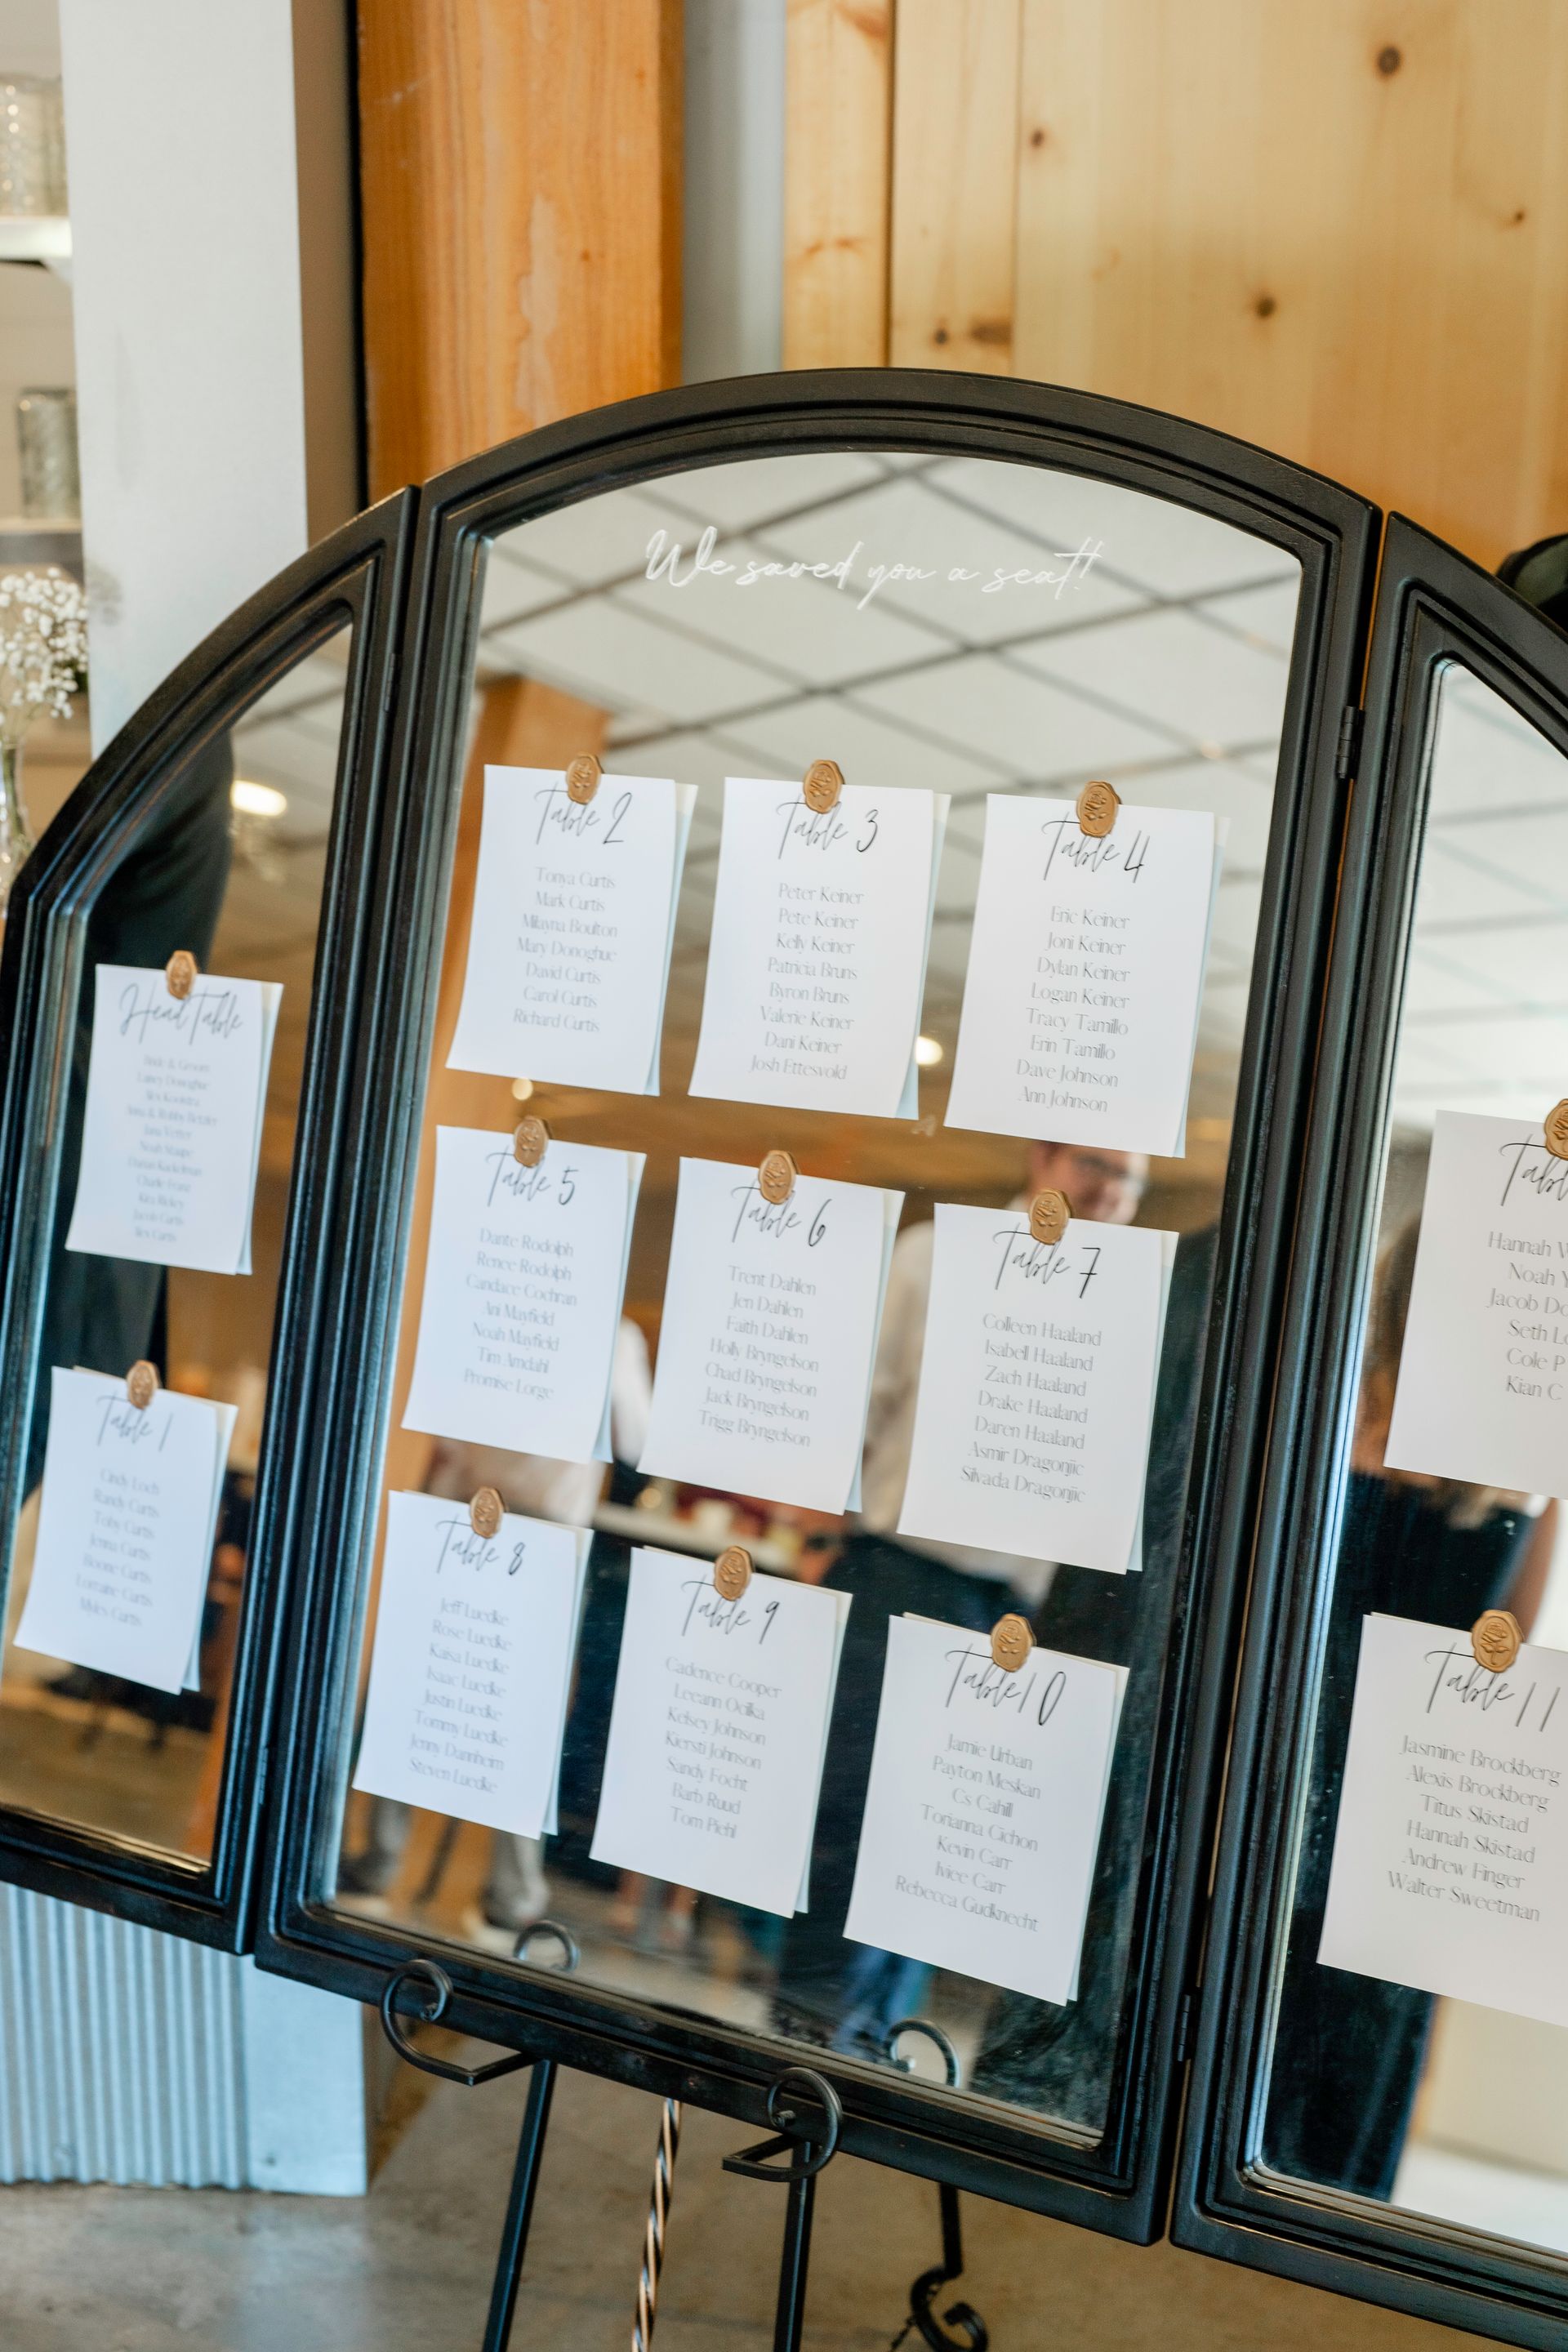 We saved you a seat!
Head Table
Bride & Groom
Lainey Donoghue
Charlie Franz
Jacob Curtis
Rex Curtis
Table 1
Cindy Loch
Randy Curtis
Toby Curtis
Jenna Curtis
Boone Curtis
Lorraine Curtis
Myles Curtis
Table 2
Tonya Curtis
Mark Curtis
Milayna Boulton
Mary Donoghue
David Curtis
Carol Curtis
Richard Curtis
Table 3
Peter Keiner
Pete Keiner
Kelly Keiner
Patricia Bruns
Byron Bruns
Valerie Keiner
Dani Keiner
Josh Ettesvold
Table 4
Eric Keiner
Joni Keiner
Dylan Keiner
Logan Keiner
Tracy Tamillo
Erin Tamillo
Dave Johnson
Ann Johnson
Table 5
Dante Rodolph
Renee Rodolph
Candace Cochran
Ani Mayfield
Noah Mayfield
Tim Amdahl
Promise Lorge
Table 6
Trent Dahlen
Jen Dahlen
Faith Dahlen
Holly Bryngelson
Chad Bryngelson
Jack Bryngelson
Trigg Bryngelson
Table 7
Colleen Haaland
Isabell Haaland
Zach Haaland
Drake Haaland
Daren Haaland
Asmir Dragonjic
Silvada Dragonjic
Table 8
Jeff Luedke
Rose Luedke
Kaisa Luedke
Isaac Luedke
Justin Luedke
Tommy Luedke
Jenny Dannheim
Steven Luedke
Table 9
Cadence Cooper
Leeann Ocilka
Kelsey Johnson
Kiersti Johnson
Sandy Focht
Barb Ruud
Tom Piehl
Table 10
Jamie Urban
Payton Meskan
Cs Cahill
Torianna Cichon
Kevin Carr
Iviee Carr
Rebecca Gudknecht
Hannah
Noah
Jacob
Seth
Cole P
Kian C
Table 11
Jasmine Brockberg
Alexis Brockberg
Titus Skistad
Hannah Skistad
Andrew Finger
Walter Sweetman